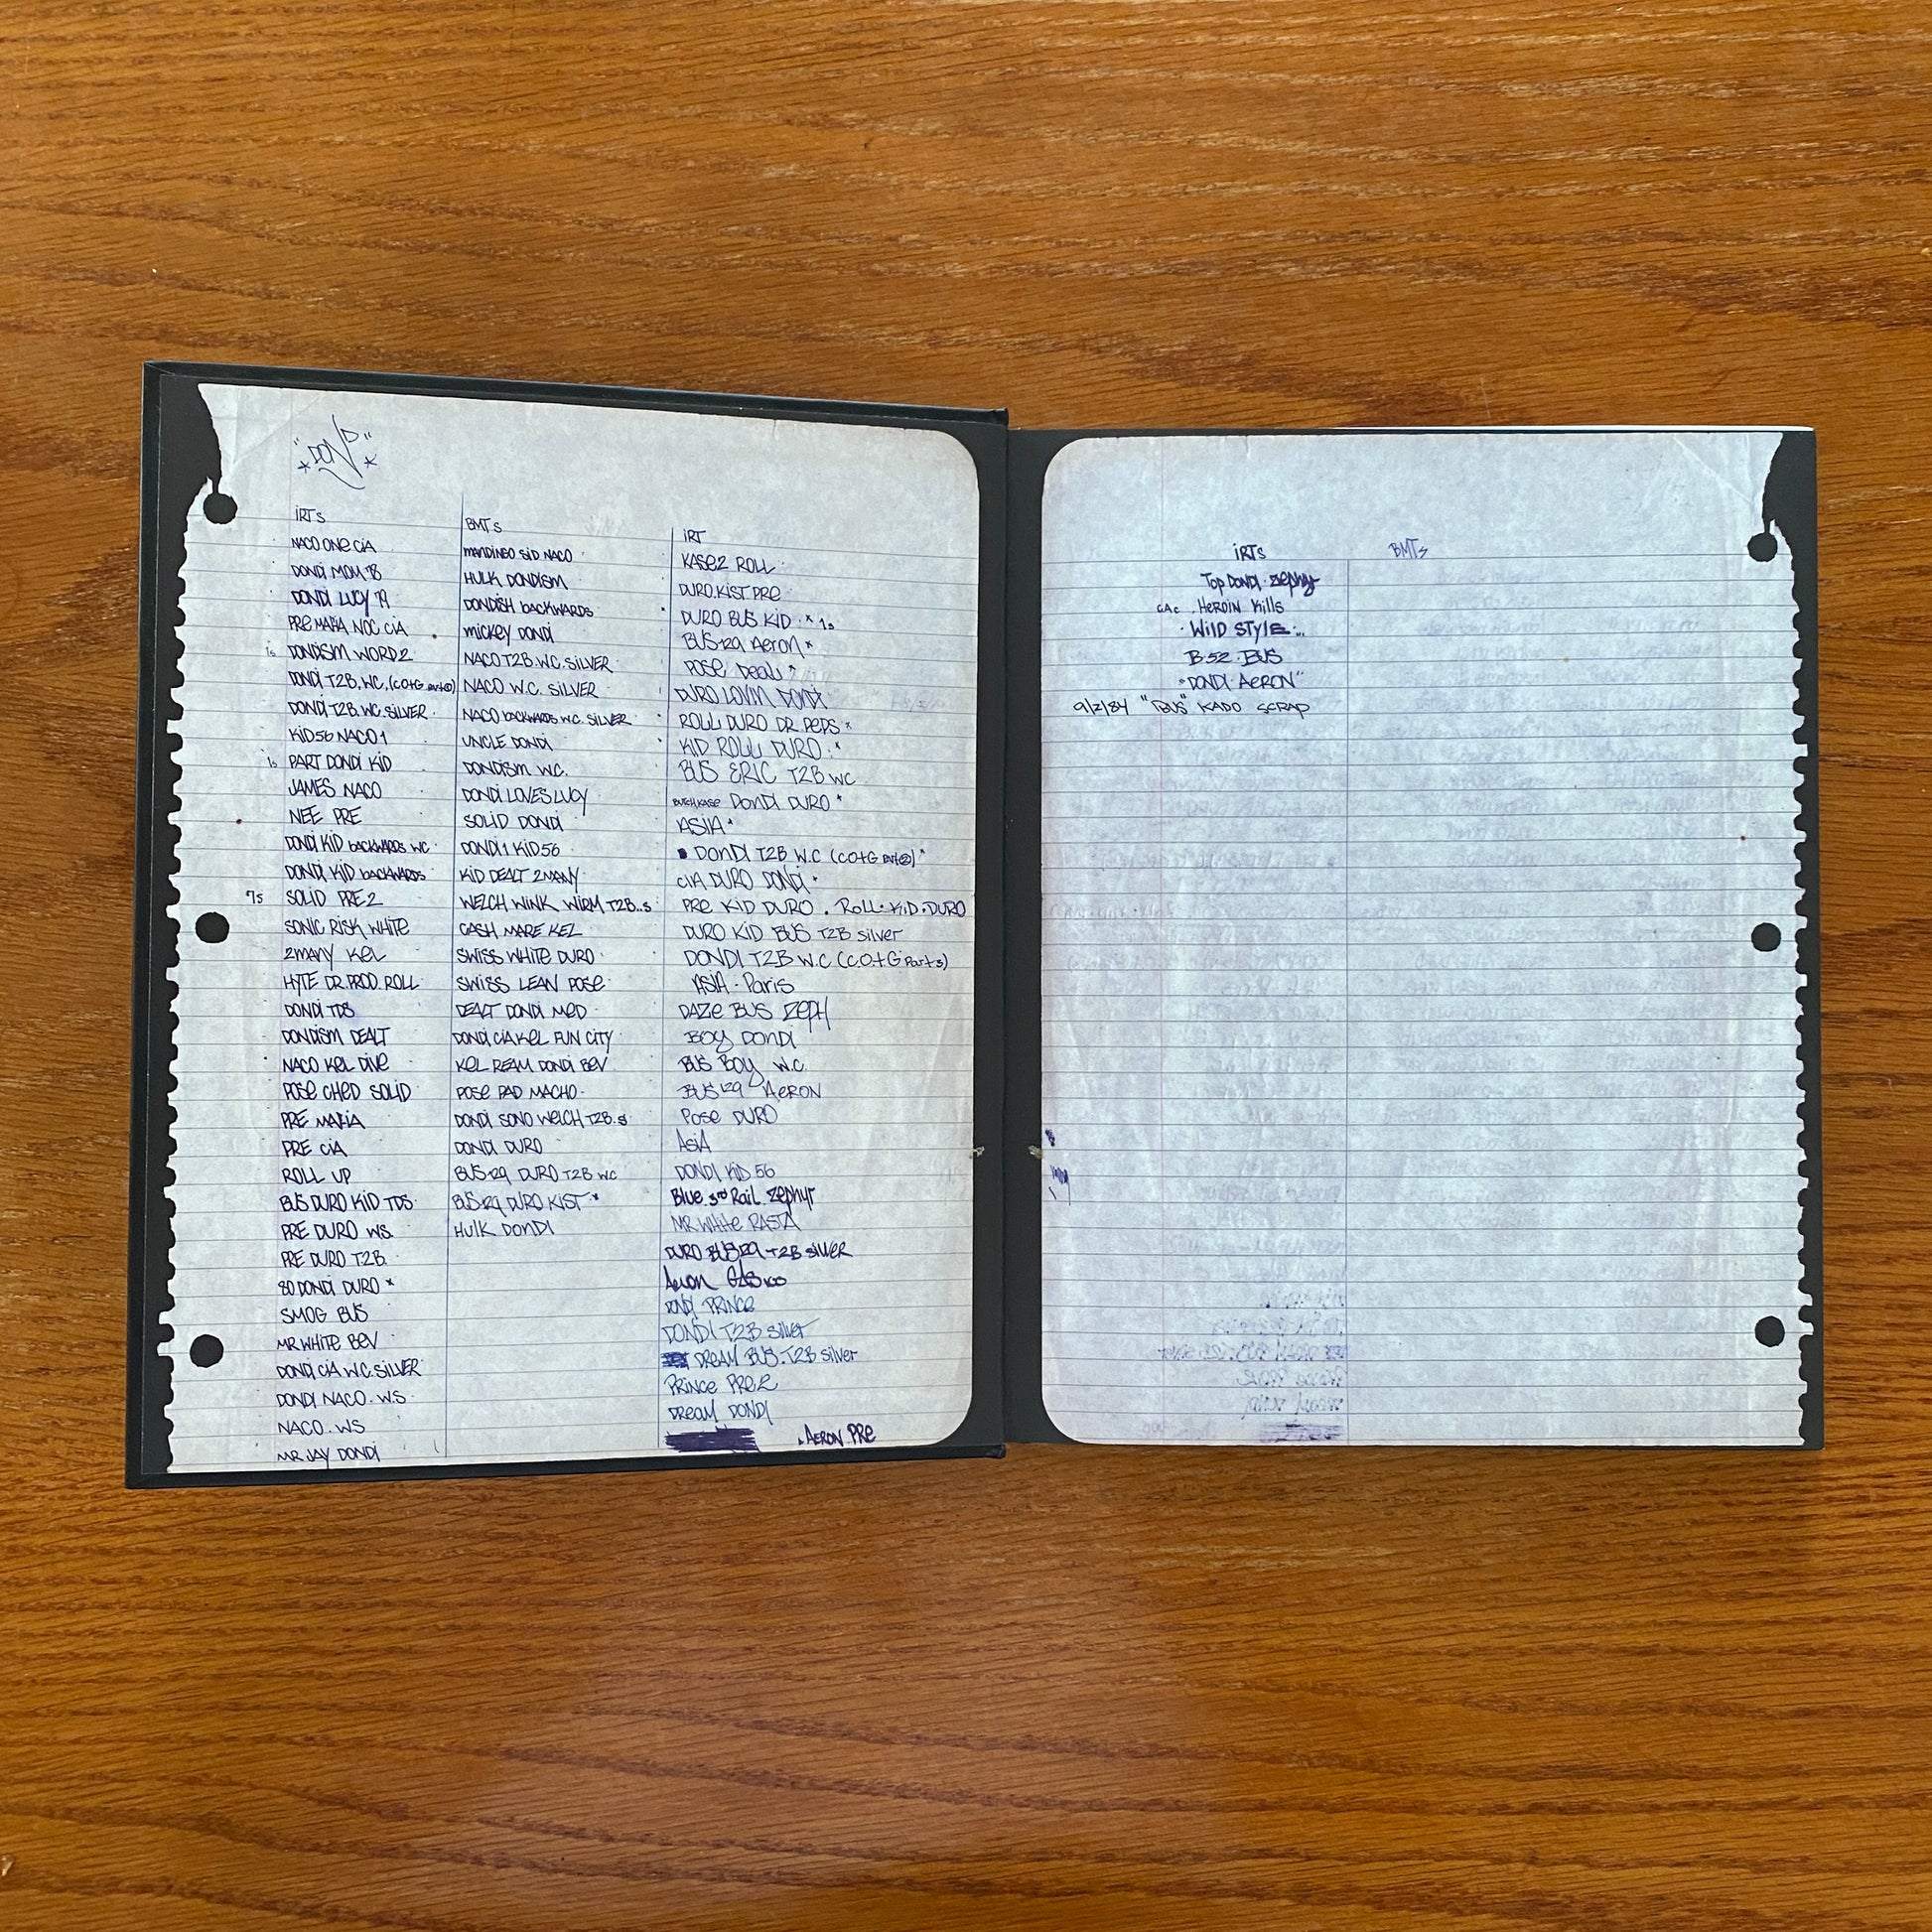 "DON"
IRTs
NACO ONE CIA
DONDI MOM 78
DONDI LUCY 79
PRE MAFIA NOC CIA
1s DONDISM WORD2
DONDI T2B. WC. (COTG Part②)
DONDI T2B. WC. SILVER
KID56 NACO1
1s PART DONDI KID
JAMES NACO
NEE PRE
DONDI KID backwards WC
DONDI KID backwards
7s SOLID PRE 2
SONIC RISK WHITE
2MANY KEL
HYTE DR. PROD. ROLL
DONDI TDS
DONDISM DEALT
NACO KEL DIVE
POSE CHED SOLID
PRE MAFIA
PRE CIA
ROLL UP
BUS DURO KID TDS
PRE DURO WS.
PRE DURO T2B.
80 DONDI DURO *
SMOG BUS
MR WHITE BEV
DONDI CIA W.C. SILVER
DONDI NACO. W.S
NACO. WS
MR JAY DONDI
BMTs
MANDINGO SID NACO
HULK DONDISM
DONDISH backwards
MICKEY DONDI
NACO T2B. WC. SILVER
NACO W.C. SILVER
NACO backwards W.C. SILVER
UNCLE DONDI
DONDISM WC.
DONDI LOVES LUCY
SOLID DONDI
DONDI1 KID56
KID DEALT 2MANY
WELCH WINK WIRM T2B..S
CASH MARE KEL
SWISS WHITE DURO
SWISS LEAN POSE
DEALT DONDI MED
DONDI CIA KEL FUN CITY
KEL REAM DONDI BEV
POSE PAD MACHO
DONDI SONO WELCH T2B.S
DONDI DURO
BUS129 DURO T2B WC
BUS129 DURO KIST *
HULK DONDI
IRT
KASE2 ROLL
DURO. KIST PRE
DURO BUS KID * 1s
BUS129 Aeron *
POSE Deal
DURO LOVIN DONDI
ROLL DURO DR. PEPS *
KID ROLL DURO *
BUS ERIC T2B WC
BUTCH KASE DONDI DURO *
ASIA *
DONDI T2B W.C (COTG Part②) *
CIA DURO DONDI *
PRE KID DURO . ROLL. KID. DURO
DURO KID BUS T2B silver
DONDI T2B W.C (C.OTG Part 3)
ASIA. Paris
DAZE BUS ZEPH
BOY DONDI
BUS BOY W.C.
BUS129 AERON
POSE DURO
ASIA
DONDI KID 56
Blue 3rd Rail. Zephyr
MR WHITE RASTA
DURO BUS129 T2B SILVER
Aeron Gas100
DONDI PRINCE
DONDI T2B silver
DREAM BUS. T2B silver
PRINCE PRE2
DREAM DONDI
. AERON. PRE
IRTs
Top DONDI. Zephyr
CAC . HEROIN Kills
. WILD STYLE...
B.52. BUS
"DONDI. AERON"
9/2/84 "BUS" KADO SCRAP
BMTs